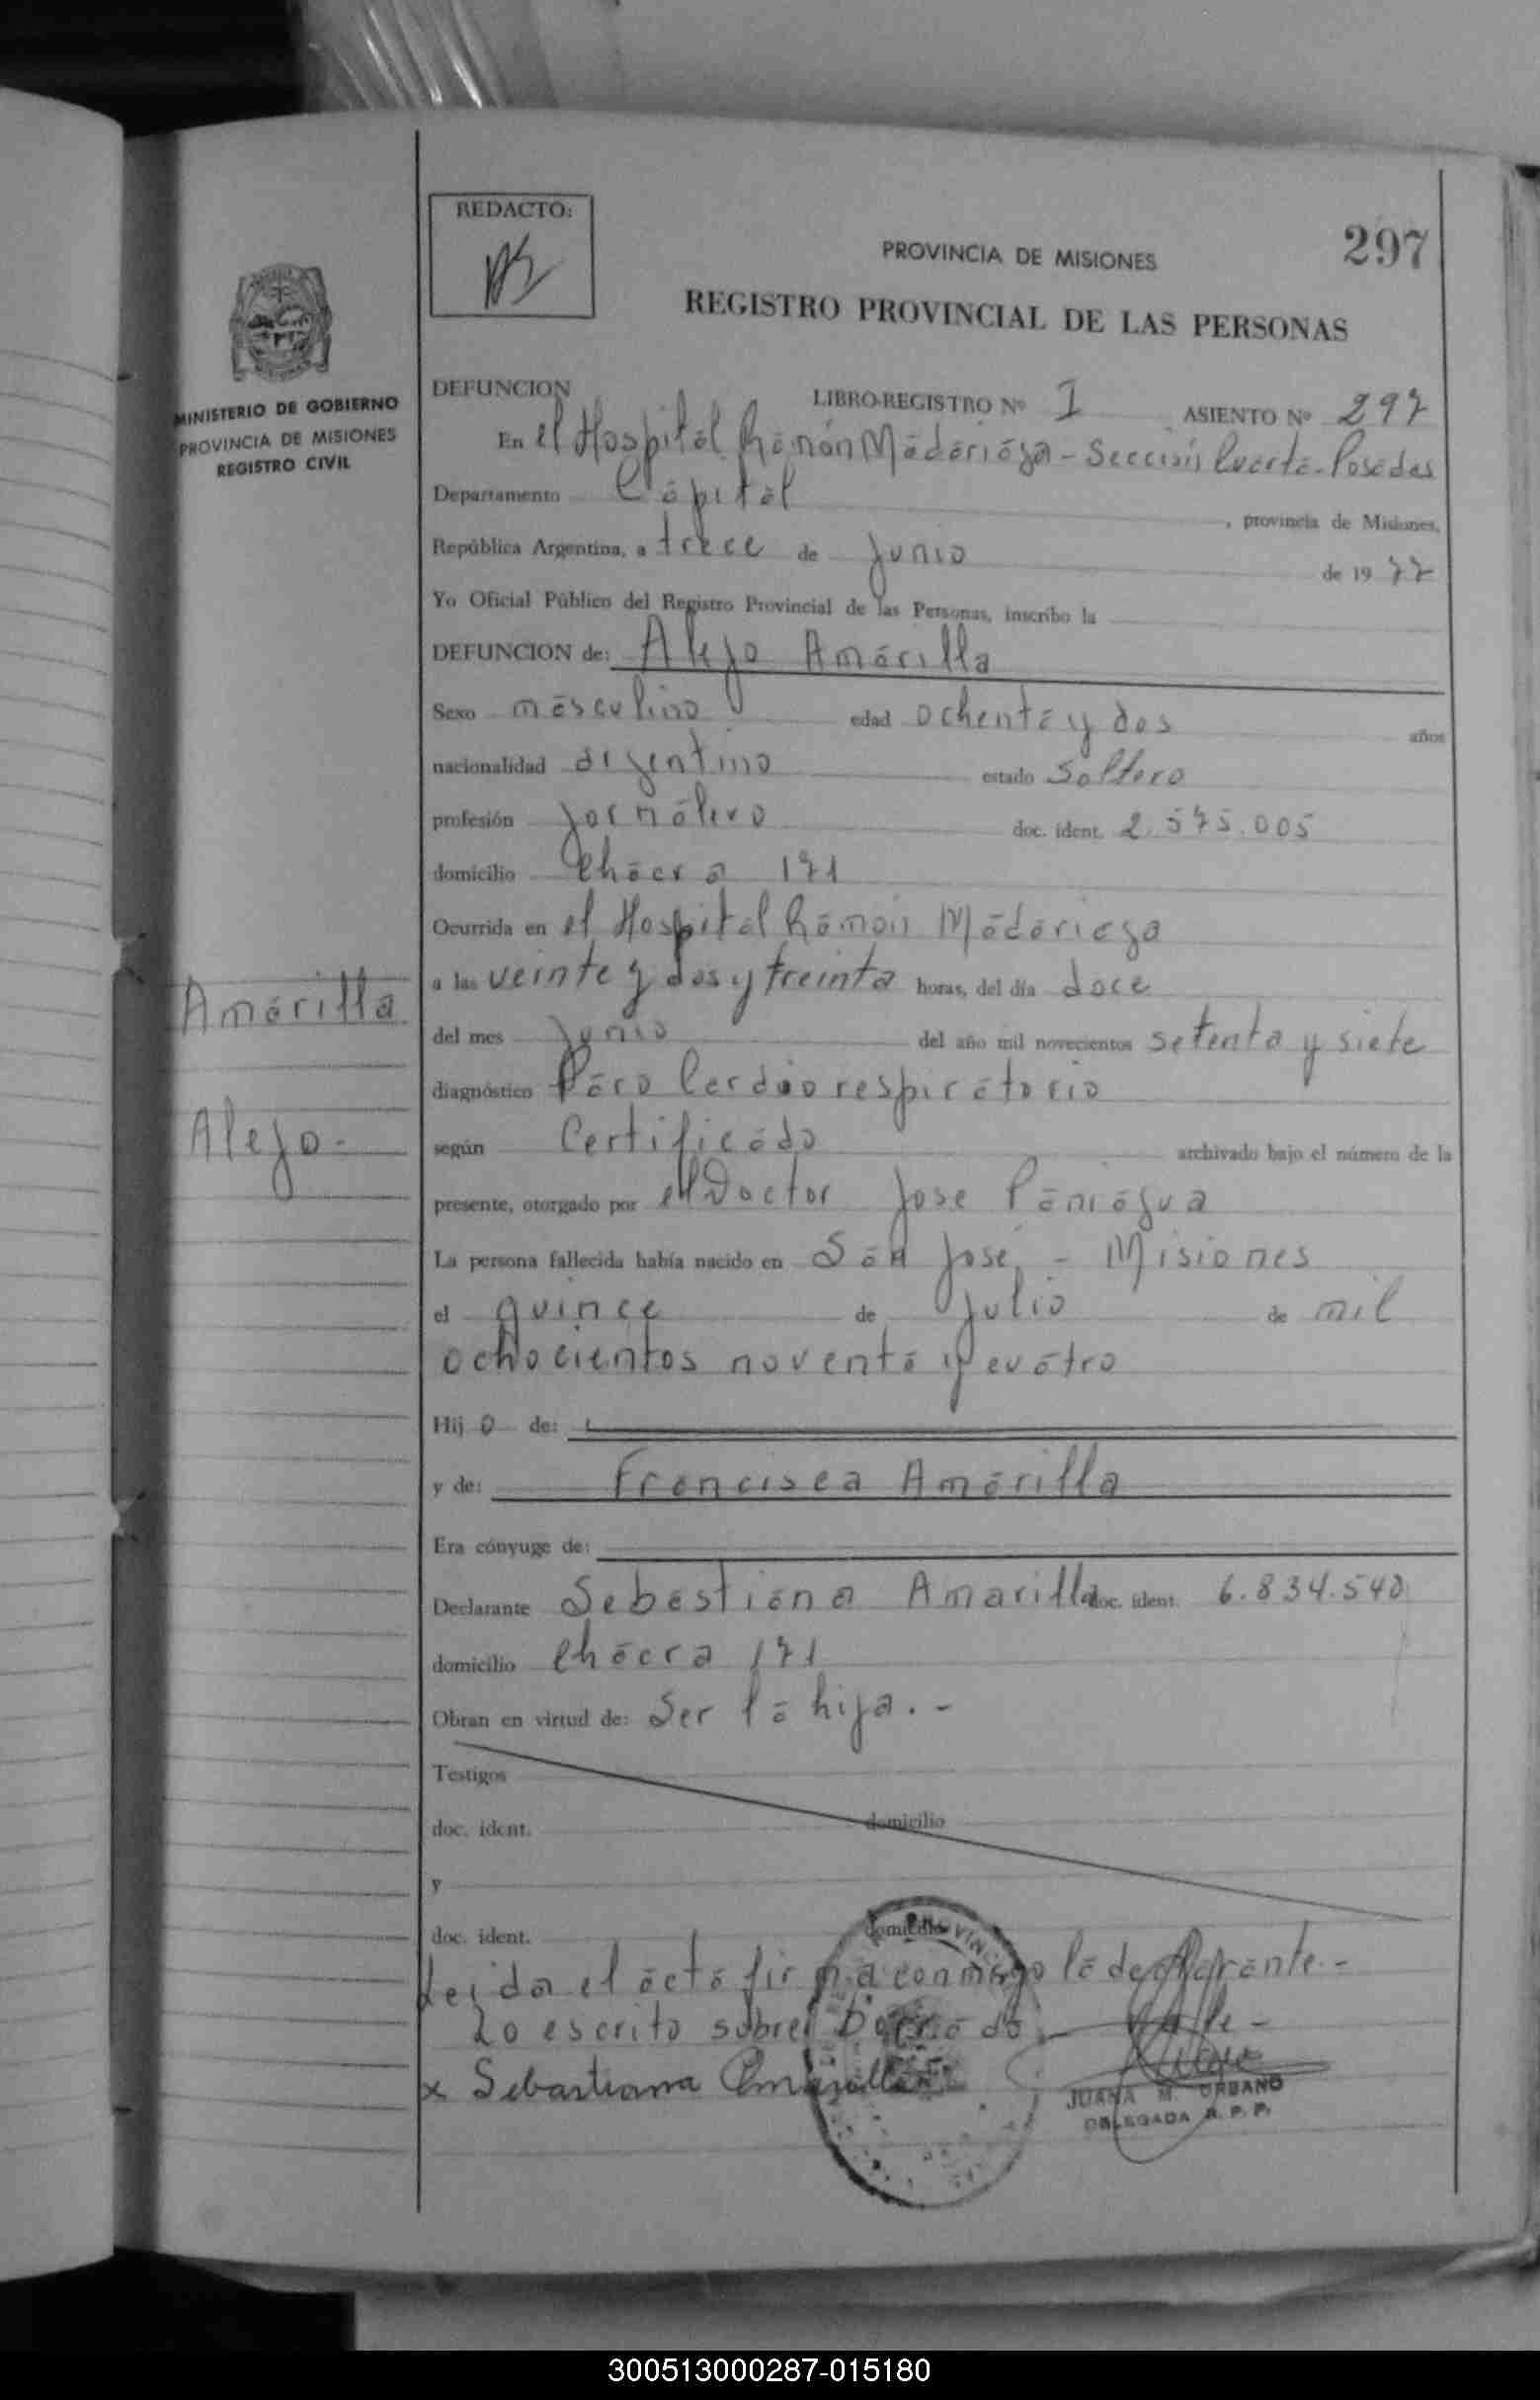 REDACTO:
297
PROVINCIA DE MISIONES
REGISTRO PROVINCIAL DE LAS PERSONAS
MINISTERIO DE GOBIERNO
PROVINCIA DE MISIONES
REGISTRO CIVIL
DEFUNCION LIBRO-REGISTRO Nº I ASIENTO Nº 297
En el Hospital Ramón Madariaga - Sección Cuarta - Posadas
Departamento Capital, provincia de Misiones,
República Argentina, a trece de junio de 1977
Yo Oficial Público del Registro Provincial de las Personas, inscribo la
DEFUNCION de: Alejo Amarilla
Sexo masculino edad ochenta y dos años
nacionalidad argentino estado soltero
profesión jornalero doc. ident. 2.575.005
domicilio Chacra 171
Ocurrida en el Hospital Ramón Madariaga
a las veinte y dos y treinta horas, del día doce
Amarilla
del mes junio del año mil novecientos setenta y siete
diagnóstico Paro Cardiorespiratorio
Alejo.-
según Certificado archivado bajo el número de la
presente, otorgado por el Doctor Jose Paniagua
La persona fallecida había nacido en San José - Misiones
el quince de julio de mil
ochocientos noventa y cuatro
Hij o de:
y de: Francisca Amarilla
Era cónyuge de:
Declarante Sebastiana Amarilla doc. ident. 6.834.540
domicilio Chacra 171
Obran en virtud de: Ser la hija.-
Testigos
doc. ident. domicilio
y
doc. ident. domicilio
Leida el acta firma conmigo la declarante.-
Lo escrito sobre borrado Vale-
x Sebastiana Amarilla
JUANA M. URBANO
DELEGADA R. P. P.
300513000287-015180